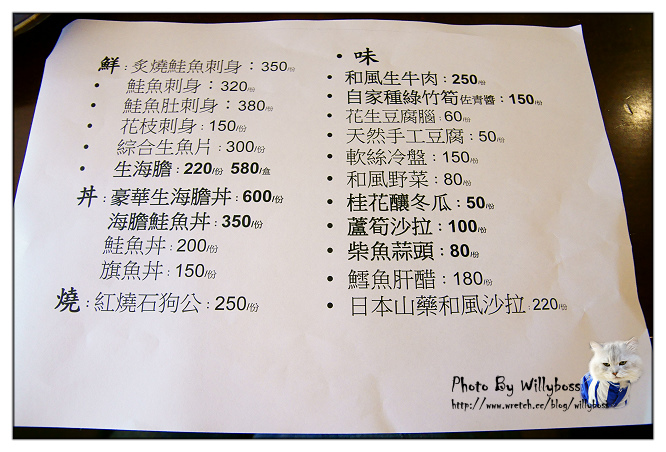 鮮：炙燒鮭魚刺身：350/份
• 鮭魚刺身：320/份
• 鮭魚肚刺身：380/份
• 花枝刺身：150/份
• 綜合生魚片：300/份
• 生海膽：220/份 580/盒
丼：豪華生海膽丼：600/份
海膽鮭魚丼：350/份
鮭魚丼：200/份
旗魚丼：150/份
燒：紅燒石狗公：250/份
• 味
• 和風生牛肉：250/份
• 自家種綠竹筍佐青醬：150/份
• 花生豆腐腦：60/份
• 天然手工豆腐：50/份
• 軟絲冷盤：150/份
• 和風野菜：80/份
• 桂花釀冬瓜：50/份
• 蘆筍沙拉：100/份
• 柴魚蒜頭：80/份
• 鱈魚肝醋：180/份
• 日本山藥和風沙拉：220/份
Photo By Willyboss
http://www.wretch.cc/blog/willyboss